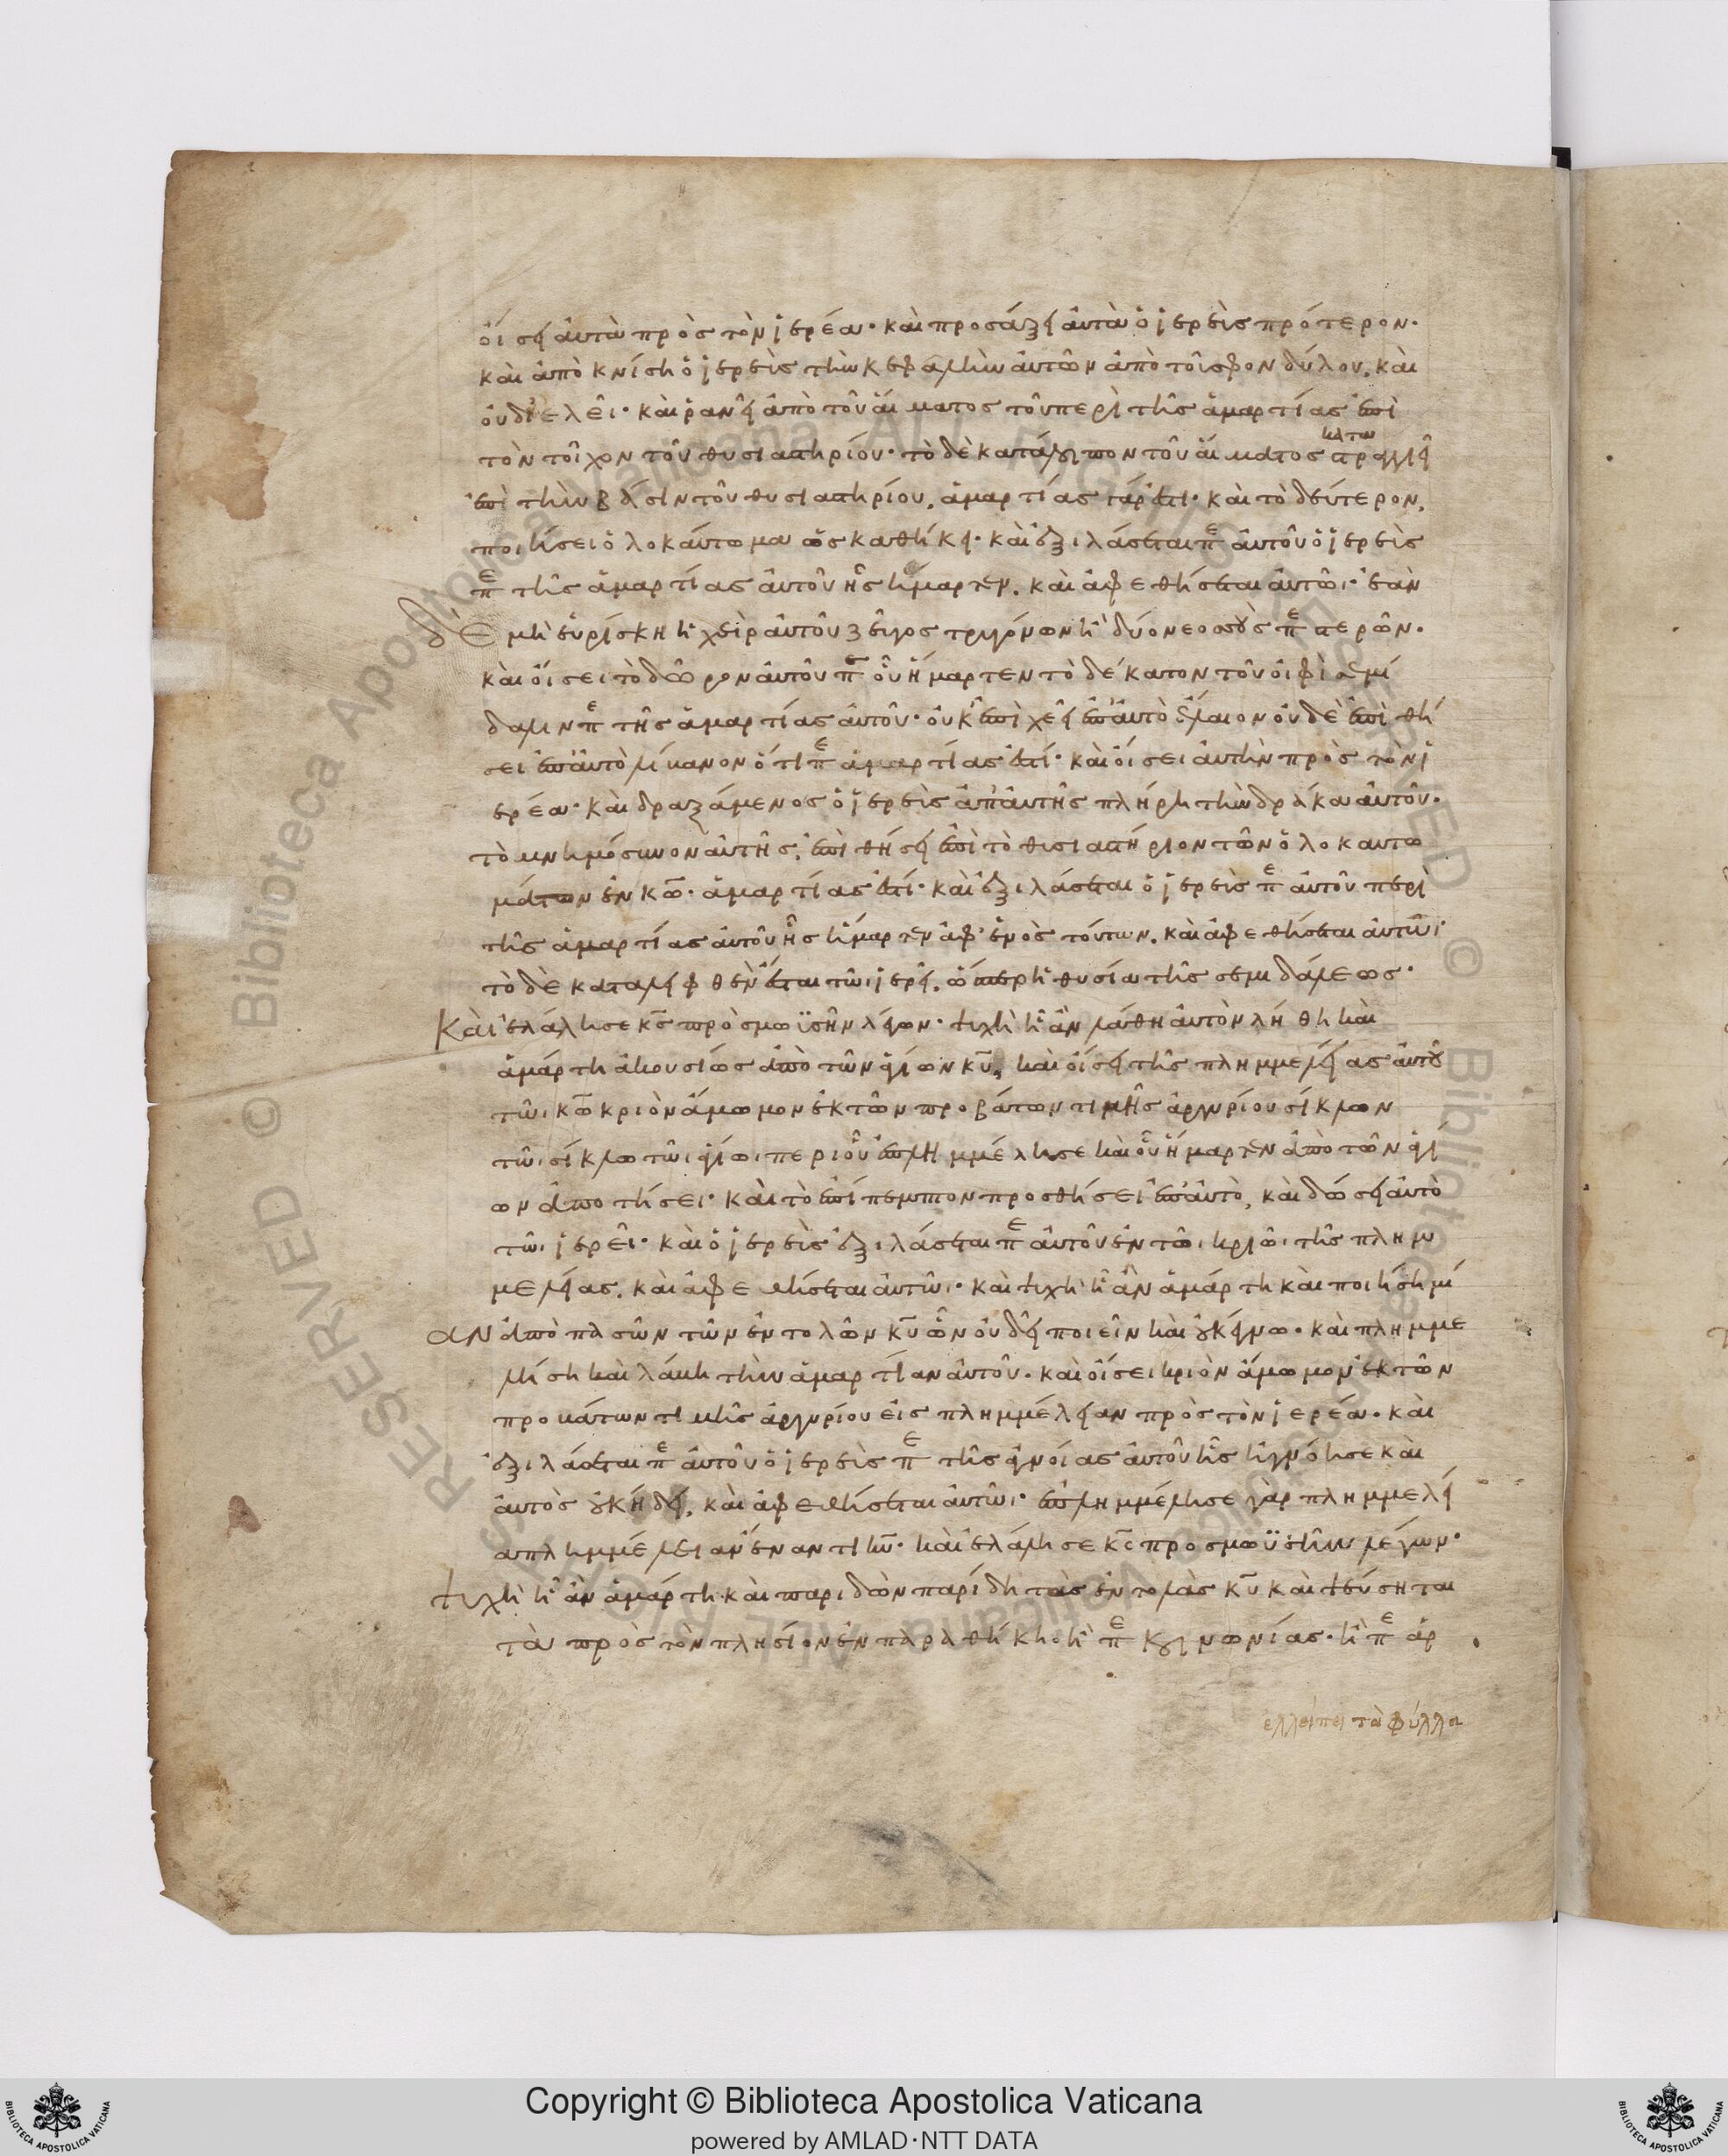 οἴσει ἀυτὰ πρὸς τὸν ἱερέα· καὶ προσάξει ἀυτὰ ὁ ἱερεὺς πρότερον·
καὶ ἀποκνίσῃ ὁ ἱερεὺς τὴν κεφαλὴν ἀυτῶν ἀπὸ τοῦ σφονδύλου, καὶ
οὐ διελεῖ· καὶ ῥανεῖ ἀπὸ τοῦ αἵματος τοῦ περὶ τῆς ἁμαρτίας ἐπὶ
τὸν τοῖχον τοῦ θυσιαστηρίου· τὸ δὲ κατάλοιπον τοῦ αἵματος στραγγιεῖ
ἐπὶ τὴν βάσιν τοῦ θυσιαστηρίου, ἁμαρτίας γάρ ἐστι· καὶ τὸ δεύτερον,
ποιήσει ὁλοκάυτωμα ὡς καθήκει· καὶ ἐξιλάσεται πε ἀυτοῦ ὁ ἱερεὺς
πε τῆς ἁμαρτίας ἀυτοῦ ἧς ἥμαρτεν, καὶ ἀφεθήσεται ἀυτῶι· ἐὰν
δὲ μὴ εὑρίσκη ἡ χεὶρ ἀυτοῦ ζεῦγος τρυγόνων ἢ δύο νεοσσοὺς πε στερῶν·
καὶ οἴσει τὸ δῶρον ἀυτοῦ πε οὗ ἥμαρτεν τὸ δέκατον τοῦ οἰφὶ σεμί
δαλιν πε τῆς ἁμαρτίας ἀυτοῦ· οὐκ ἐπιχεεῖ ἐπ' ἀυτὸ ἔλαιον οὐδὲ ἐπιθή
σει ἐπ' ἀυτὸ λίβανον ὅτι πε ἁμαρτίας ἐστί· καὶ οἴσει ἀυτὴν πρὸς τὸν ἱ
ερέα· καὶ δραξάμενος ὁ ἱερεὺς ἀπ' ἀυτῆς πλήρη τὴν δράκα ἀυτοῦ·
τὸ μνημόσυνον ἀυτῆς, ἐπιθήσει ἐπὶ τὸ θυσιαστήριον τῶν ὁλοκαυτω
μάτων ἐν κω· ἁμαρτίας ἐστί· καὶ ἐξιλάσεται ὁ ἱερεὺς πε ἀυτοῦ περὶ
τῆς ἁμαρτίας ἀυτοῦ ἧς ἥμαρτεν ἀφ' ἑνὸς τούτων, καὶ ἀφεθήσεται ἀυτῶι·
τὸ δὲ καταλειφθὲν ἔσται τῶι ἱερεῖ, ὥσπερ ἡ θυσία τῆς σεμιδάλεως·
Καὶ ἐλάλησε κς πρὸς μωϋσῆν λέγων· ψυχὴ ἣ ἂν λάθη ἀυτὸν λήθη καὶ
ἁμάρτη ἀκουσίως ἀπὸ τῶν ἁγίων κυ, καὶ οἴσει τῆς πλημμελείας ἀυτοῦ
τῶι κω κριὸν ἄμωμον ἐκ τῶν προβάτων τιμῆς ἀργυρίου σίκλων
τῶι σίκλω τῶι ἁγίωι περὶ οὗ ἐπλημμέλησε καὶ οὗ ἥμαρτεν ἀπὸ τῶν ἁγί
ων ἀποτήσει· καὶ τὸ ἐπίπεμπτον προσθήσει ἐπ' ἀυτὸ, καὶ δώσει ἀυτὸ
τῶι ἱερεῖ· καὶ ὁ ἱερεὺς ἐξιλάσεται πε ἀυτοῦ ἐν τῶι κριῶι τῆς πλημ
μελείας, καὶ ἀφεθήσεται ἀυτῶι· καὶ ψυχὴ ἣ ἂν ἁμάρτη καὶ ποιήση μί
αν ἀπὸ πασῶν τῶν ἐντολῶν κυ ὧν οὐ δεῖ ποιεῖν καὶ οὐκ ἔγνω· καὶ πλημμε
λήση καὶ λάβη τὴν ἁμαρτίαν ἀυτοῦ· καὶ οἴσει κριὸν ἄμωμον ἐκ τῶν
προβάτων τιμῆς ἀργυρίου εἰς πλημμέλειαν πρὸς τὸν ἱερέα· καὶ
ἐξιλάσεται πε ἀυτοῦ ὁ ἱερεὺς πε τῆς ἀγνοίας ἀυτοῦ ἧς ἠγνόησε καὶ
ἀυτὸς οὐκ ἤδει, καὶ ἀφεθήσεται ἀυτῶι· ἐπλημμέλησε γὰρ πλημμελεί
α πλημμέλειαν ἔναντι κυ· καὶ ἐλάλησε κς προς μωϋσῆν λέγων·
ψυχὴ ἣ ἂν ἁμάρτη καὶ παριδὼν παρίδη τὰς ἐντολὰς κυ καὶ ψεύσηται
τὰ πρὸς τὸν πλησίον ἐν παραθήκη· ἢ πε κοινωνίας· ἢ πε ἁρ
ἐλλείπει τὰ φύλλα
Copyright © Biblioteca Apostolica Vaticana
powered by AMLAD·NTT DATA